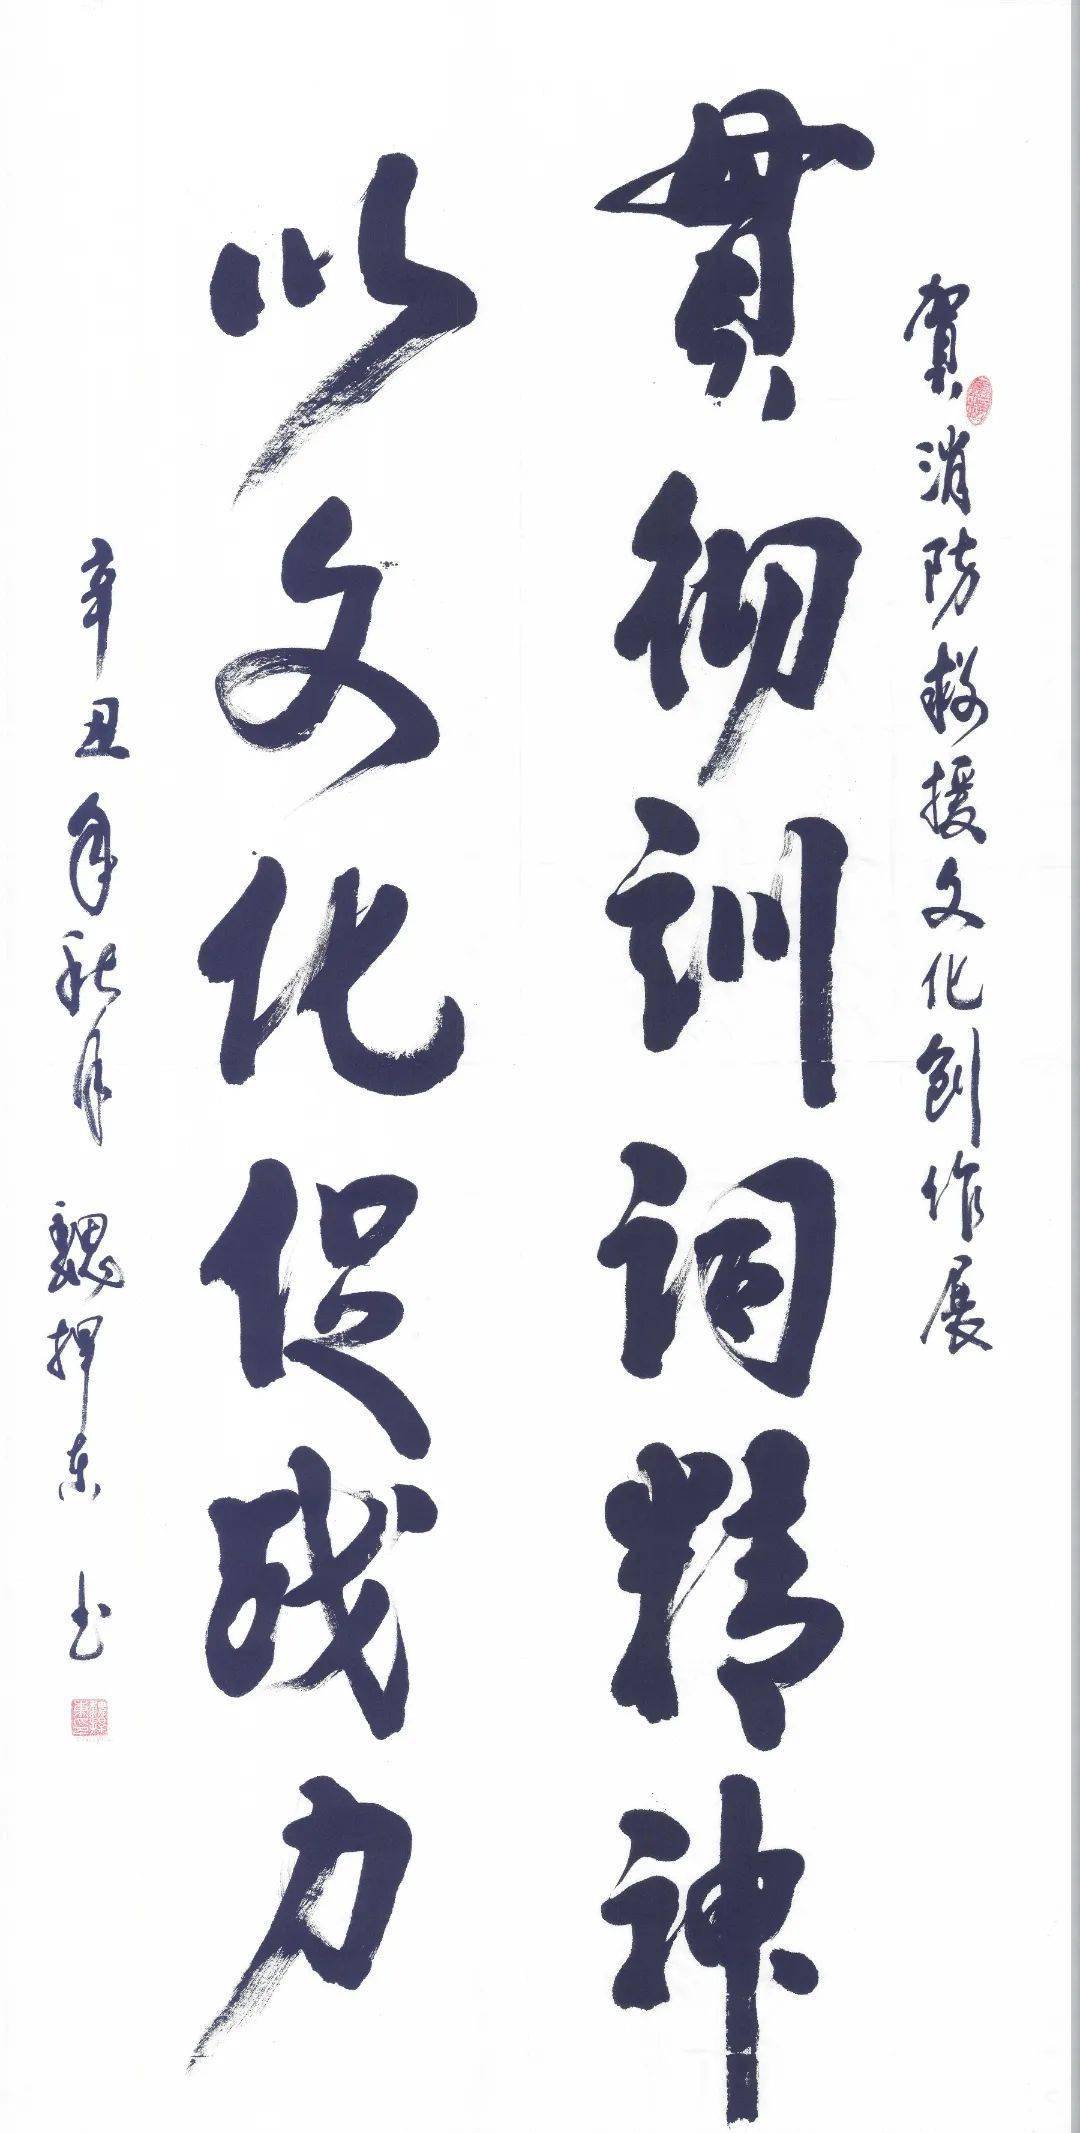 贺消防救援文化创作展
贯彻训词精神
以文化促战力
辛丑年秋月 魏捍东书